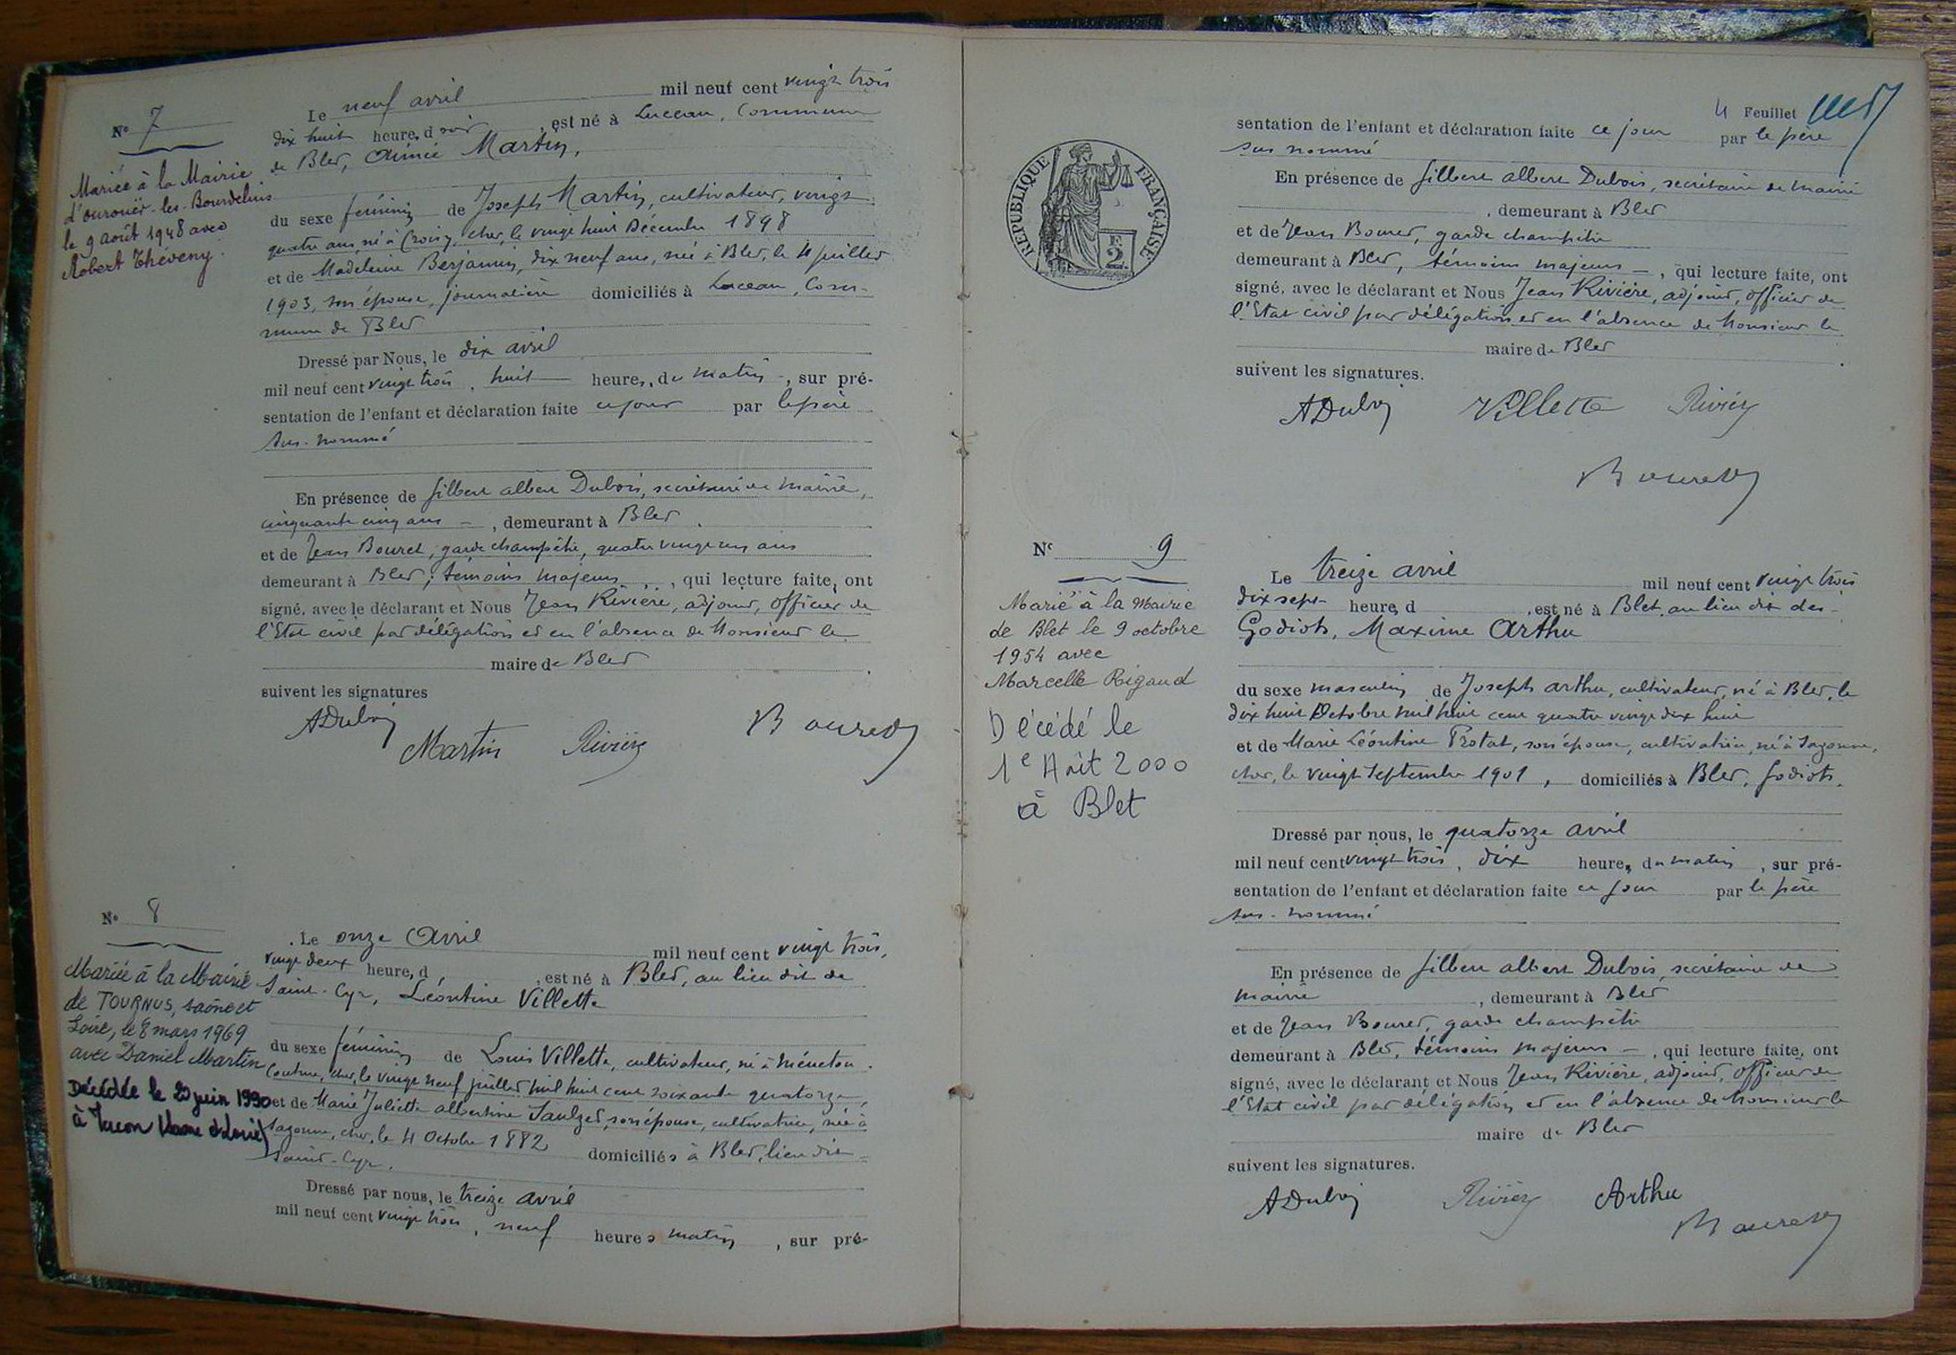 N° 7
Mariée à la Mairie
d'ourouër-les-Bourdelins
le 9 août 1948 avec
Robert Theveny.
Le neuf avril mil neuf cent vingt trois
dix huit heures d soir, est né à Luceau, Commune
de Blet, Aimée Martin,
du sexe féminin de Joseph Martin, cultivateur, vingt
quatre ans, né à Croisy, cher, le vingt huit Décembre 1898
et de Madeleine Berjamin, dix neuf ans, née à Blet, le 4 juillet
1903, son épouse, journalière domiciliés à Luceau, Com-
mune de Blet
Dressé par Nous, le dix avril
mil neuf cent vingt trois, huit heures, du matin, sur pré-
sentation de l'enfant et déclaration faite ce jour par le père
sus-nommé
En présence de Gilbert albert Dubois, secrétaire de mairie,
cinquante cinq ans, demeurant à Blet.
et de Jean Bouret, garde champêtre, ans
demeurant à Blet, témoins majeurs, qui lecture faite, ont
signé, avec le déclarant et Nous Jean Rivière, adjoint, officier de
l'Etat civil par délégation et en l'absence de Monsieur le
maire de Blet
suivent les signatures
ADuboi Martin Rivière Bouret
N° 8
Mariée à la Mairie
de TOURNUS, Saône et
Loire, le 8 mars 1969
avec Daniel Martin
Décédée le 20 juin 1990
à
Le onze Avril mil neuf cent vingt trois,
vingt deux heures, d , est né à Blet, au lieu dit de
Saint-Cyr, Léontine Villette
du sexe féminin de Louis Villette, cultivateur, né à Ménetou
Couture, cher, le vingt neuf juillet mil huit cent soixante quatorze,
et de Marie Juliette albertine Saulzet, son épouse, cultivatrice, née à
Sagonne, cher, le 4 Octobre 1882 domiciliés à Blet, lieu dit
Saint-Cyr.
Dressé par nous, le treize avril
mil neuf cent vingt trois, neuf heures matin, sur pré-
4 Feuillet
sentation de l'enfant et déclaration faite ce jour par le père
sus nommé
En présence de Gilbert albert Dubois, secrétaire de mairie
, demeurant à Blet
et de Jean Bouret, garde champêtre
demeurant à Blet, témoins majeurs, qui lecture faite, ont
signé, avec le déclarant et Nous Jean Rivière, adjoint, officier de
l'Etat civil par délégation et en l'absence de Monsieur le
maire de Blet
suivent les signatures.
ADuboi Villette Rivière
Bouret
RÉPUBLIQUE FRANÇAISE
2
N° 9
Marié à la Mairie
de Blet le 9 octobre
1954 avec
Marcelle Rigaud
Décédé le
1e Août 2000
à Blet
Le treize avril mil neuf cent vingt trois
dix sept heures, d , est né à Blet, au lieu dit des
Godiots, Maxime Arthu
du sexe masculin de Joseph Arthu, cultivateur, né à Blet, le
dix huit Octobre mil huit cent quatre vingt dix huit
et de Marie Léontine Protat, son épouse, cultivatrice, né à Sagonne,
cher, le vingt septembre 1901, domiciliés à Blet, Godiots.
Dressé par nous, le quatorze avril
mil neuf cent vingt trois, dix heures, du matin, sur pré-
sentation de l'enfant et déclaration faite ce jour par le père
sus-nommé
En présence de Gilbert albert Dubois, secrétaire de
mairie, demeurant à Blet
et de Jean Bouret, garde champêtre
demeurant à Blet, témoins majeurs, qui lecture faite, ont
signé, avec le déclarant et Nous Jean Rivière, adjoint, officier de
l'Etat civil par délégation et en l'absence de Monsieur le
maire de Blet
suivent les signatures.
ADuboi Rivière Arthu
Bouret